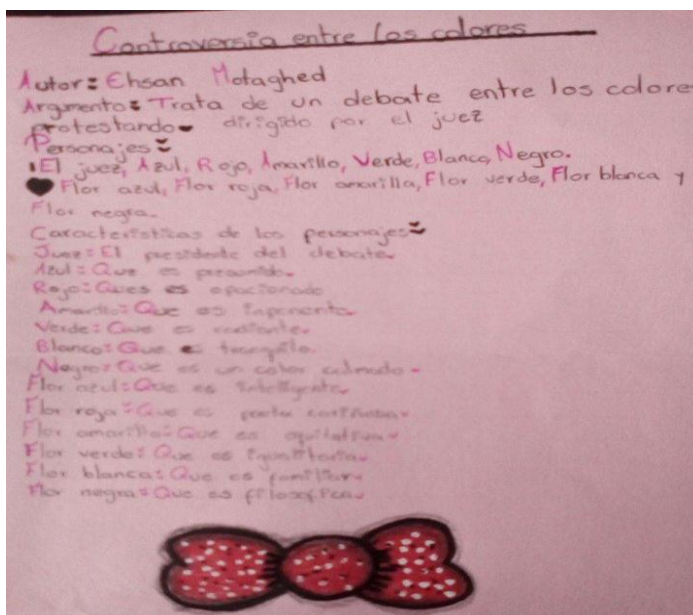 Controversia entre los colores
Autor: Ehsan Motaghed
Argumento: Trata de un debate entre los colore
protestando dirigido por el juez
Personajes:
El juez, Azul, Rojo, Amarillo, Verde, Blanco, Negro.
Flor azul, Flor roja, Flor amarilla, Flor verde, Flor blanca y
Flor negra.
Características de los personajes:
Juez: El presidente del debate.
Azul: Que es presumido.
Rojo: Ques es apacionado
Amarillo: Que es imponente.
Verde: Que es
Blanco: Que e tranquilo.
Negro: Que es un color calmado.
Flor azul: Que es inteligente.
Flor roja: Que es poeta
Flor amarilla: Que es equitativa.
Flor verde: Que es igualitaria.
Flor blanca: Que es familiar.
Flor negra: Que es filosofica.